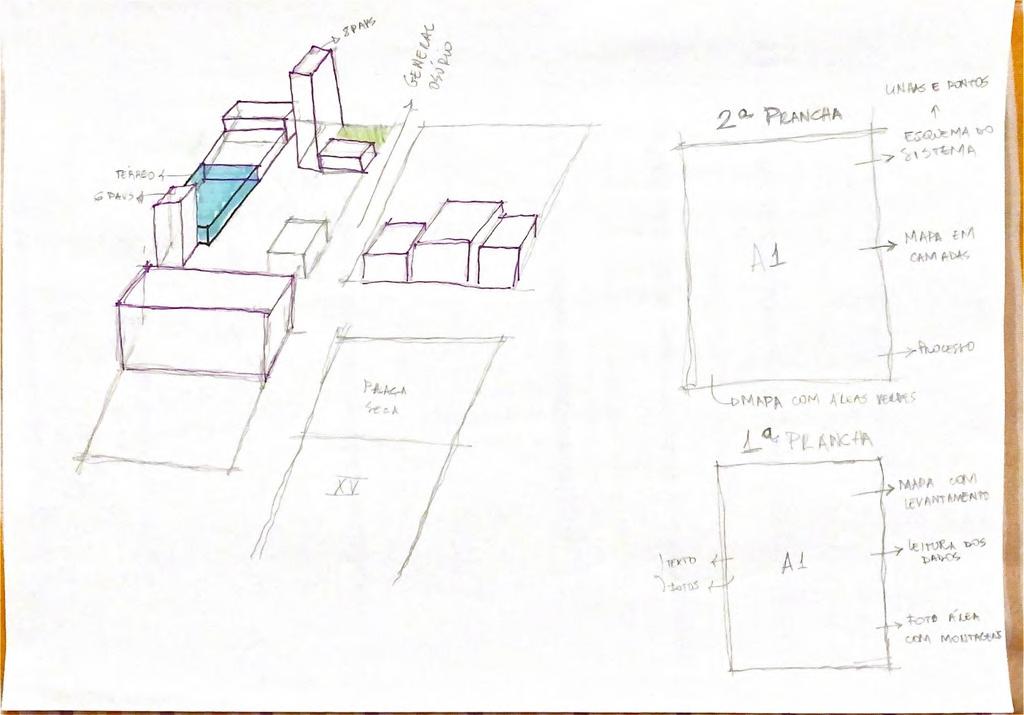 8 PAVS
GENERAL
OSÓRIO
TÉRREO
6 PAVS
PRAÇA
SECA
XV
2ª PRANCHA
LINHAS E PONTOS
ESQUEMA DO
SISTEMA
A1
MAPA EM
CAMADAS
PROCESSO
MAPA COM ÁREAS VERDES
1ª PRANCHA
MAPA COM
LEVANTAMENTO
A1
LEITURA DOS
DADOS
TEXTO
FOTOS
FOTO ÁREA
COM MONTAGENS